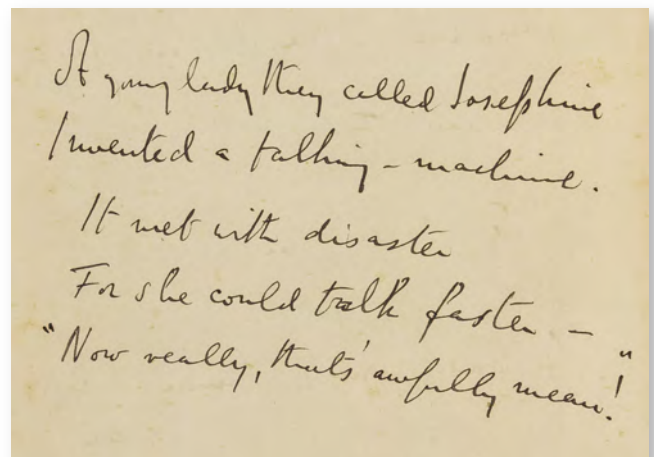 A young lady they called Josephine
Invented a talking-machine.
It met with disaster
For she could talk faster —
"Now really, that's awfully mean!"